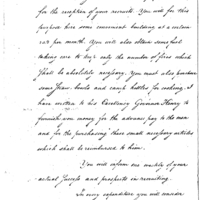 for the reception of your recruits. You will for this
purpose hire some convenient building at a certain
rent per month. You will also obtain some fuel
taking care to buy only the number of fires which
shall be absolutely necessary. You must also purchase
some straw beds and camp kettles for cooking. I
have written to his Excellency Governor Henry to
furnish you money for the advance pay to the men
and for the purchasing these small necessary articles
which shall be reimbursed to him.
You will inform me weekly of your
actual success and prospects in recruiting.
In every expenditure you will consider